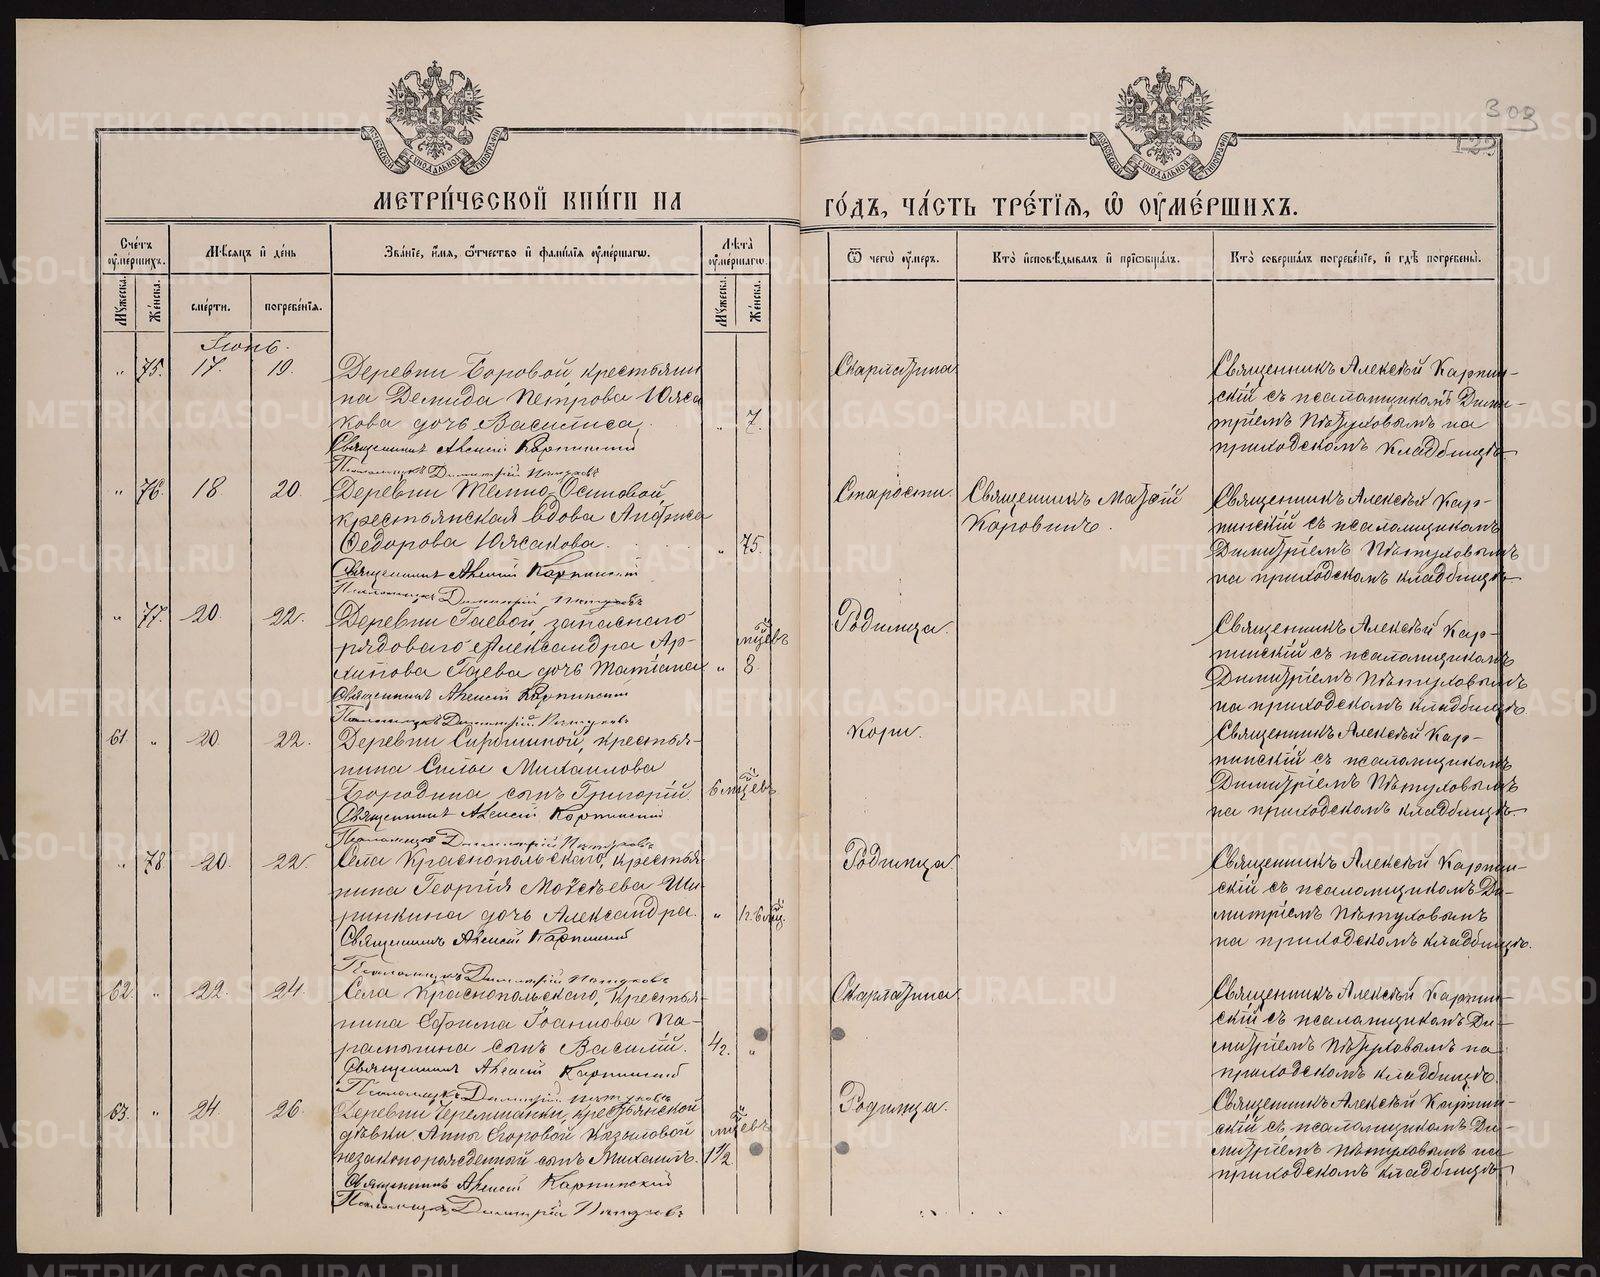 303
123
МЕТРИ́ЧЕСКОЙ КНИ́ГИ НА
ГО́ДЪ, ЧА́СТЬ ТРЕ́ТЇѦ, Ѡ ОУ҆МЕ́РШИХЪ.
Сче́тъ оу҆ме́ршихъ.
Мꙋ́жеска.
Же́нска.
Мѣ́сяцъ и҆ де́нь
сме́рти.
погребе́нїѧ.
Зва́нїе, и҆́мѧ, ѻ҆́тчество и҆ фами́лїѧ оу҆ме́ршагѡ.
Лѣ́та оу҆ме́ршагѡ.
Мꙋ́жеска.
Же́нска.
Ѿ чегѡ̀ оу҆́меръ.
Кто̀ и҆сповѣ́дывалъ и҆ прїѡбща́лъ.
Кто̀ соверша́лъ погребе́нїе, и҆ гдѣ̀ погребены̀.
Іюнь.
" 75. 17. 19.
Деревни Боровой, крестьяни
на Демида Петрова Юяса
кова дочь Василиса. " 7.
Священникъ Алексій Карпинский
Псаломщикъ Димитрій Пѣтуховъ
Скарлатина
Священникъ Алексѣй Карпин-
скій съ псаломщикомъ Дими-
тріемъ Пѣтуховымъ на
приходскомъ кладбищѣ.
" 76. 18 20.
Деревни Темно-Осиновой,
крестьянская вдова Анфиса
Ѳедорова Юясакова. " 75.
Священникъ Алексій Карпинский
Псаломщикъ Димитрій Пѣтуховъ
Старости.
Священникъ Матѳій
Коровинъ.
Священникъ Алексѣй Кар-
пинскій съ псаломщикомъ
Димитріемъ Пѣтуховымъ
на приходскомъ кладбищѣ
" 77. 20 22.
Деревни Гаевой, запаснаго
рядоваго Александра Ар-
хипова Гаева дочь Татіана " мцевъ 8.
Священникъ Алексій Карпинский
Псаломщикъ Димитрій Пѣтуховъ
Родимца.
Священникъ Алексѣй Кар-
пинскій съ псаломщикомъ
Димитріемъ Пѣтуховымъ
на приходскомъ кладбищѣ.
61. " 20 22.
нина Силы Михаилова
Бородина сынъ Григорій. 6 мцевъ
Священникъ Алексій Карпинский
Псаломщикъ Димитрій Пѣтуховъ
Кори.
Священникъ Алексѣй Кар-
пинскій съ псаломщикомъ
Димитріемъ Пѣтуховымъ
на приходскомъ кладбищѣ.
" 78 20. 22
Села Краснопольскаго, крестья-
нина Георгія Моѵсѣева Ши-
ринкина дочь Александра. "
Священникъ Алексій Карпинский
Псаломщикъ Димитрій Пѣтуховъ
Родимца.
Священникъ Алексѣй Карпин-
скій съ псаломщикомъ Ди-
митріемъ Пѣтуховымъ
на приходскомъ кладбищѣ.
62. " 22. 24.
Села Краснопольскаго, крестья-
нина Ефима Іоаннова Па-
рамыгина сынъ Василій. "
Священникъ Алексій Карпинский
Псаломщикъ Димитрій Пѣтуховъ
Скарлатина
Священникъ Алексѣй Карпин-
скій съ псаломщикомъ Ди-
митріемъ Пѣтуховымъ на
приходскомъ кладбищѣ.
63. " 24. 26.
Деревни Черемшанки, крестьянской
дѣвки Анны Егоровой Казыловой
незаконорожденный сынъ Михаилъ. мцевъ 1 1/2
Священникъ Алексій Карпинский
Псаломщикъ Димитрій Пѣтуховъ
Родимца.
Священникъ Алексѣй Карпин-
скій съ псаломщикомъ Ди-
митріемъ Пѣтуховымъ на
приходскомъ кладбищѣ
METRIKI.GASO-URAL.RU